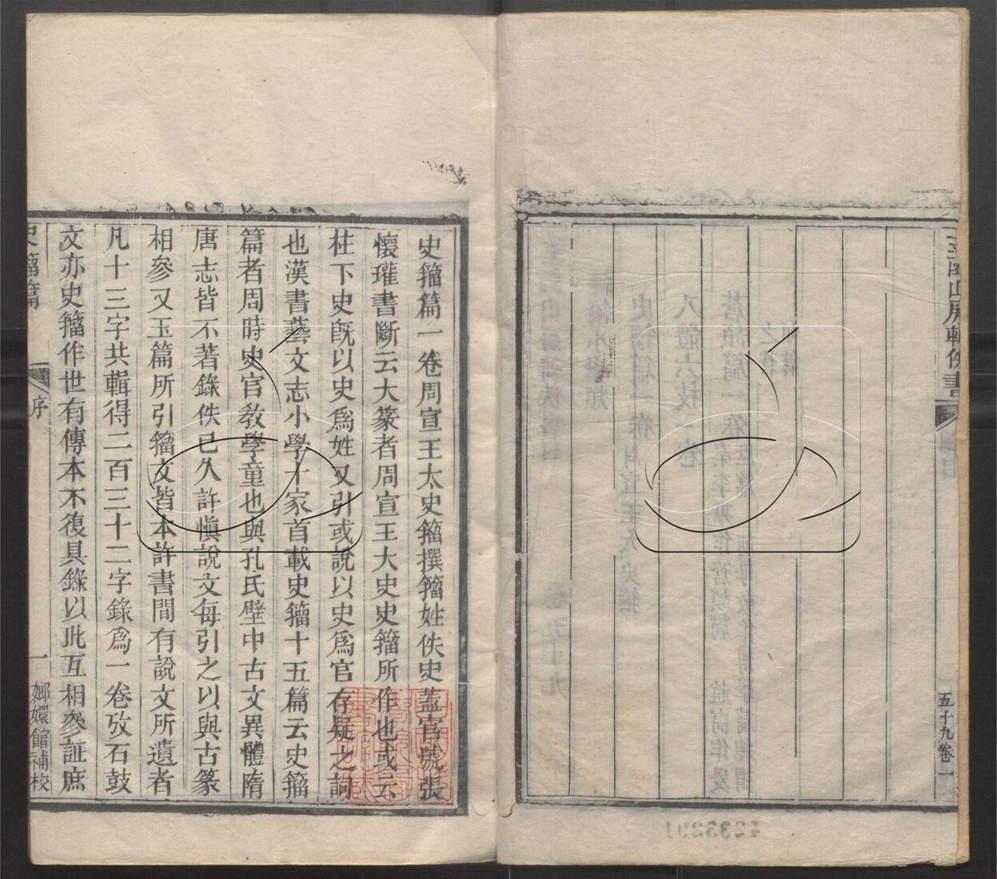 玉函山房輯佚書
五十九卷一
史籀篇一卷周宣王太史籀撰籀姓佚史蓋官號張
懷瓘書斷云大篆者周宣王大史史籀所作也或云
柱下史旣以史爲姓又引或說以史爲官存疑之詞
也漢書藝文志小學十家首載史籀十五篇云史籀
篇者周時史官敎學童也與孔氏壁中古文異體隋
唐志皆不著錄佚已久許愼說文每引之以與古篆
相參又玉篇所引籀文皆本許書間有說文所遺者
凡十三字共輯得二百三十二字錄爲一卷攷石鼓
文亦史籀作世有傳本不復具錄以此互相參証庶
史籀篇
序
一
嫏嬛館補校